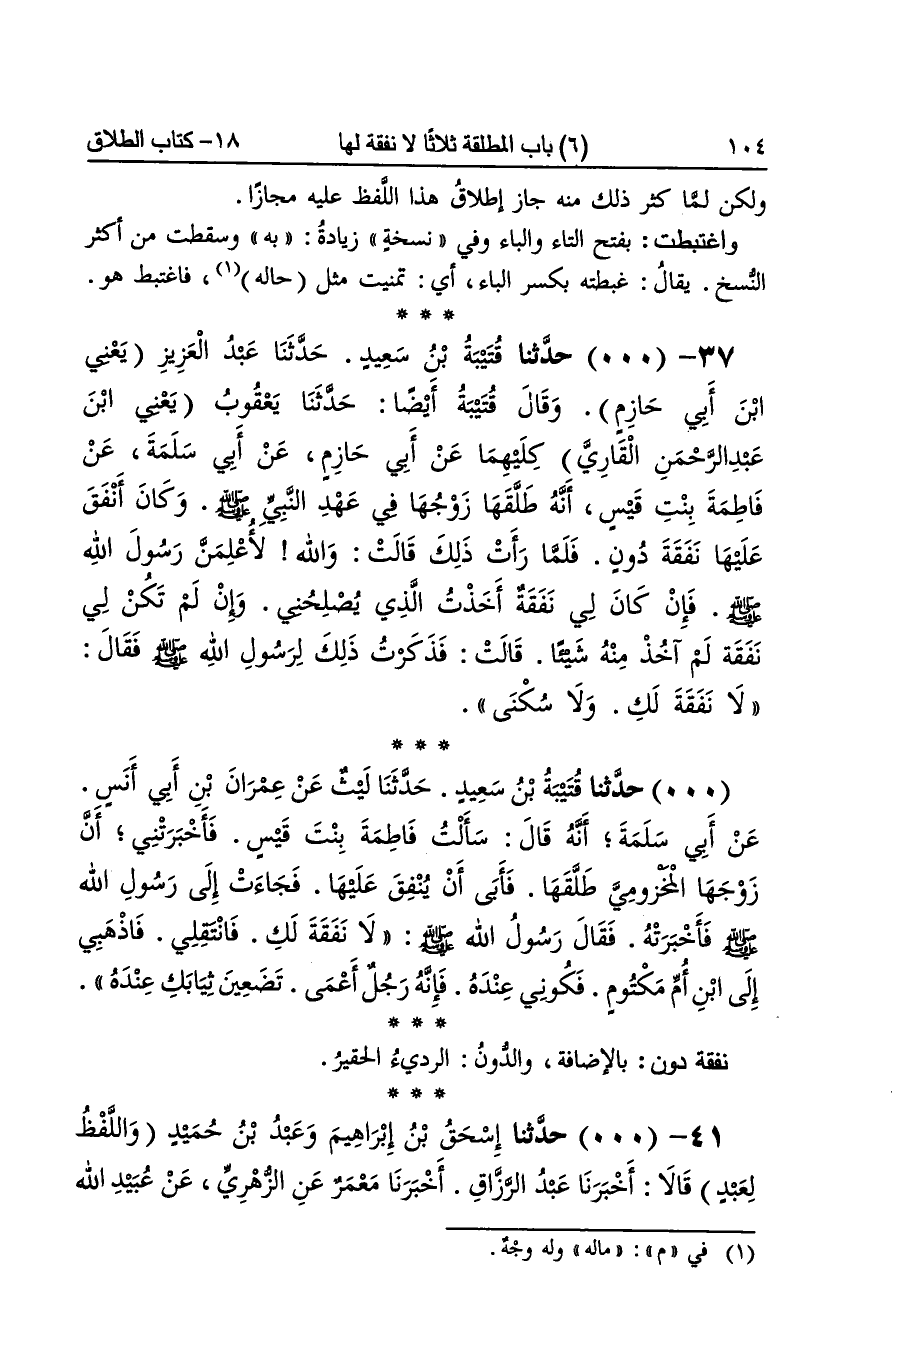 ١٠٤ (٦) باب المطلقة ثلاثًا لا نفقة لها ١٨- كتاب الطلاق
ولكن لمَّا كثر ذلك منه جاز إطلاقُ هذا اللَّفظ عليه مجازًا .
واغتبطت : بفتح التاء والباء وفي «نسخةٍ» زيادةُ : «به» وسقطت من أكثر
النُّسخ . يقالُ : غبطته بكسر الباء ، أي : تمنيت مثل (حاله)(١) ، فاغتبط هو .
* * *
٣٧- (٠٠٠) حدَّثنا قُتَيْبَةُ بْنُ سَعِيدٍ . حَدَّثَنَا عَبْدُ الْعَزِيزِ (يَعْنِي
ابْنَ أَبِي حَازِمٍ) . وَقَالَ قُتَيْبَةُ أَيْضًا : حَدَّثَنَا يَعْقُوبُ (يَعْنِي ابْنَ
عَبْدِالرَّحْمَنِ الْقَارِيَّ) كِلَيْهِمَا عَنْ أَبِي حَازِمٍ ، عَنْ أَبِي سَلَمَةَ ، عَنْ
فَاطِمَةَ بِنْتِ قَيْسٍ ، أَنَّهُ طَلَّقَهَا زَوْجُهَا فِي عَهْدِ النَّبِيِّ ﷺ . وَكَانَ أَنْفَقَ
عَلَيْهَا نَفَقَةَ دُونٍ . فَلَمَّا رَأَتْ ذَلِكَ قَالَتْ : وَالله ! لَأُعْلِمَنَّ رَسُولَ اللهِ
ﷺ . فَإِنْ كَانَ لِي نَفَقَةٌ أَخَذْتُ الَّذِي يُصْلِحُنِي . وَإِنْ لَمْ تَكُنْ لِي
نَفَقَة لَمْ آخُذْ مِنْهُ شَيْئًا . قَالَتْ : فَذَكَرْتُ ذَلِكَ لِرَسُولِ اللهِ ﷺ فَقَالَ :
«لَا نَفَقَةَ لَكِ . وَلَا سُكْنَى» .
* * *
(٠٠٠) حدَّثنا قُتَيْبَةُ بْنُ سَعِيدٍ . حَدَّثَنَا لَيْثٌ عَنْ عِمْرَانَ بْنِ أَبِي أَنَسٍ .
عَنْ أَبِي سَلَمَةَ ؛ أَنَّهُ قَالَ : سَأَلْتُ فَاطِمَةَ بِنْتَ قَيْسٍ . فَأَخْبَرَتْنِي ؛ أَنَّ
زَوْجَهَا الْمَخْزُومِيَّ طَلَّقَهَا . فَأَبَى أَنْ يُنْفِقَ عَلَيْهَا . فَجَاءَتْ إِلَى رَسُولِ الله
ﷺ فَأَخْبَرَتْهُ . فَقَالَ رَسُولُ الله ﷺ : «لَا نَفَقَةَ لَكِ . فَانْتَقِلِي . فَاذْهَبِي
إِلَى ابْنِ أُمِّ مَكْتُومٍ . فَكُونِي عِنْدَهُ . فَإِنَّهُ رَجُلٌ أَعْمَى . تَضَعِينَ ثِيَابَكِ عِنْدَهُ» .
* * *
نفقة دون : بالإضافة ، والدُّونُ : الرديءُ الحقيرُ .
* * *
٤١- (٠٠٠) حدَّثنا إِسْحَقُ بْنُ إِبْرَاهِيمَ وَعَبْدُ بْنُ حُمَيْدٍ (وَاللَّفْظُ
لِعَبْدٍ) قَالَا : أَخْبَرَنَا عَبْدُ الرَّزَّاقِ . أَخْبَرَنَا مَعْمَرٌ عَنِ الزُّهْرِيِّ ، عَنْ عُبَيْدِ الله
(١) في «م» : «ماله» وله وجْهٌ .